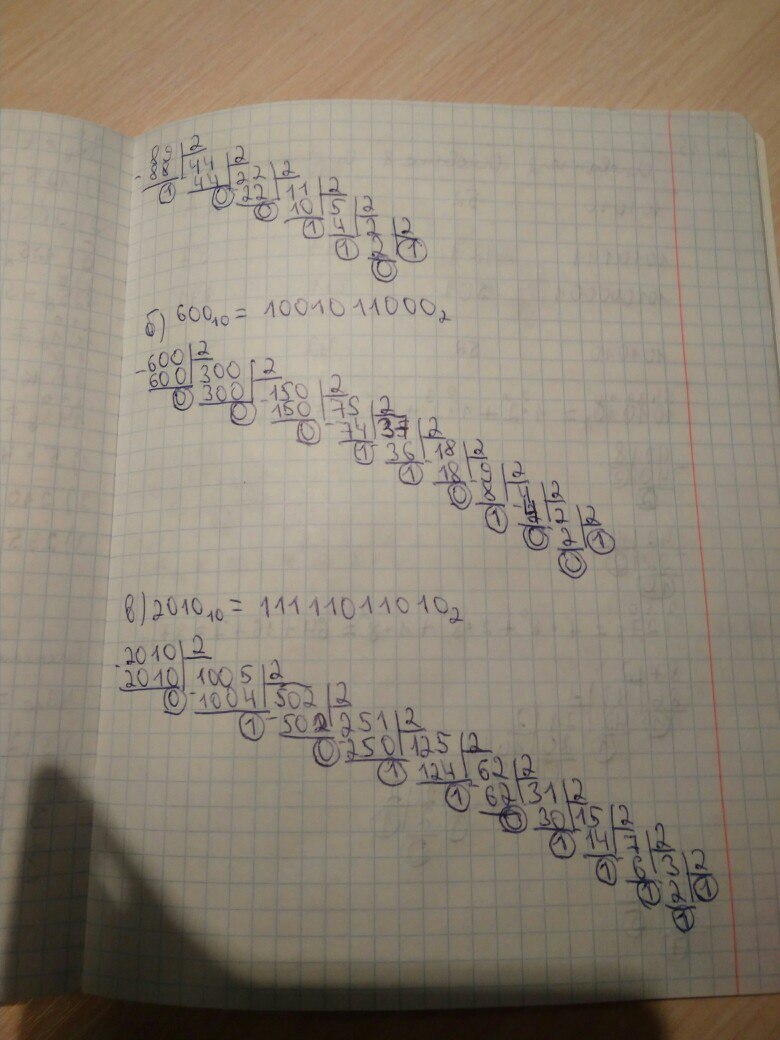 -89 | 2
88 | 44 | 2
1 44 | 22 | 2
0 22 | 11 | 2
0 10 | 5 | 2
1 4 | 2 | 2
1 2 1
0
б) 600₁₀ = 1001011000₂
-600 | 2
600 | 300 | 2
0 300 | -150 | 2
0 150 | 75 | 2
0 -74 | 37 | 2
1 36 | 18 | 2
1 18 | 9 | 2
0 8 | 4 | 2
1 4 | 2 | 2
0 2 1
0
в) 2010₁₀ = 11111011010₂
-2010 | 2
2010 | 1005 | 2
0 -1004 | 502 | 2
1 -502 | 251 | 2
0 250 | 125 | 2
1 124 | 62 | 2
1 62 | 31 | 2
0 30 | 15 | 2
1 14 | 7 | 2
1 6 | 3 | 2
1 2 1
1